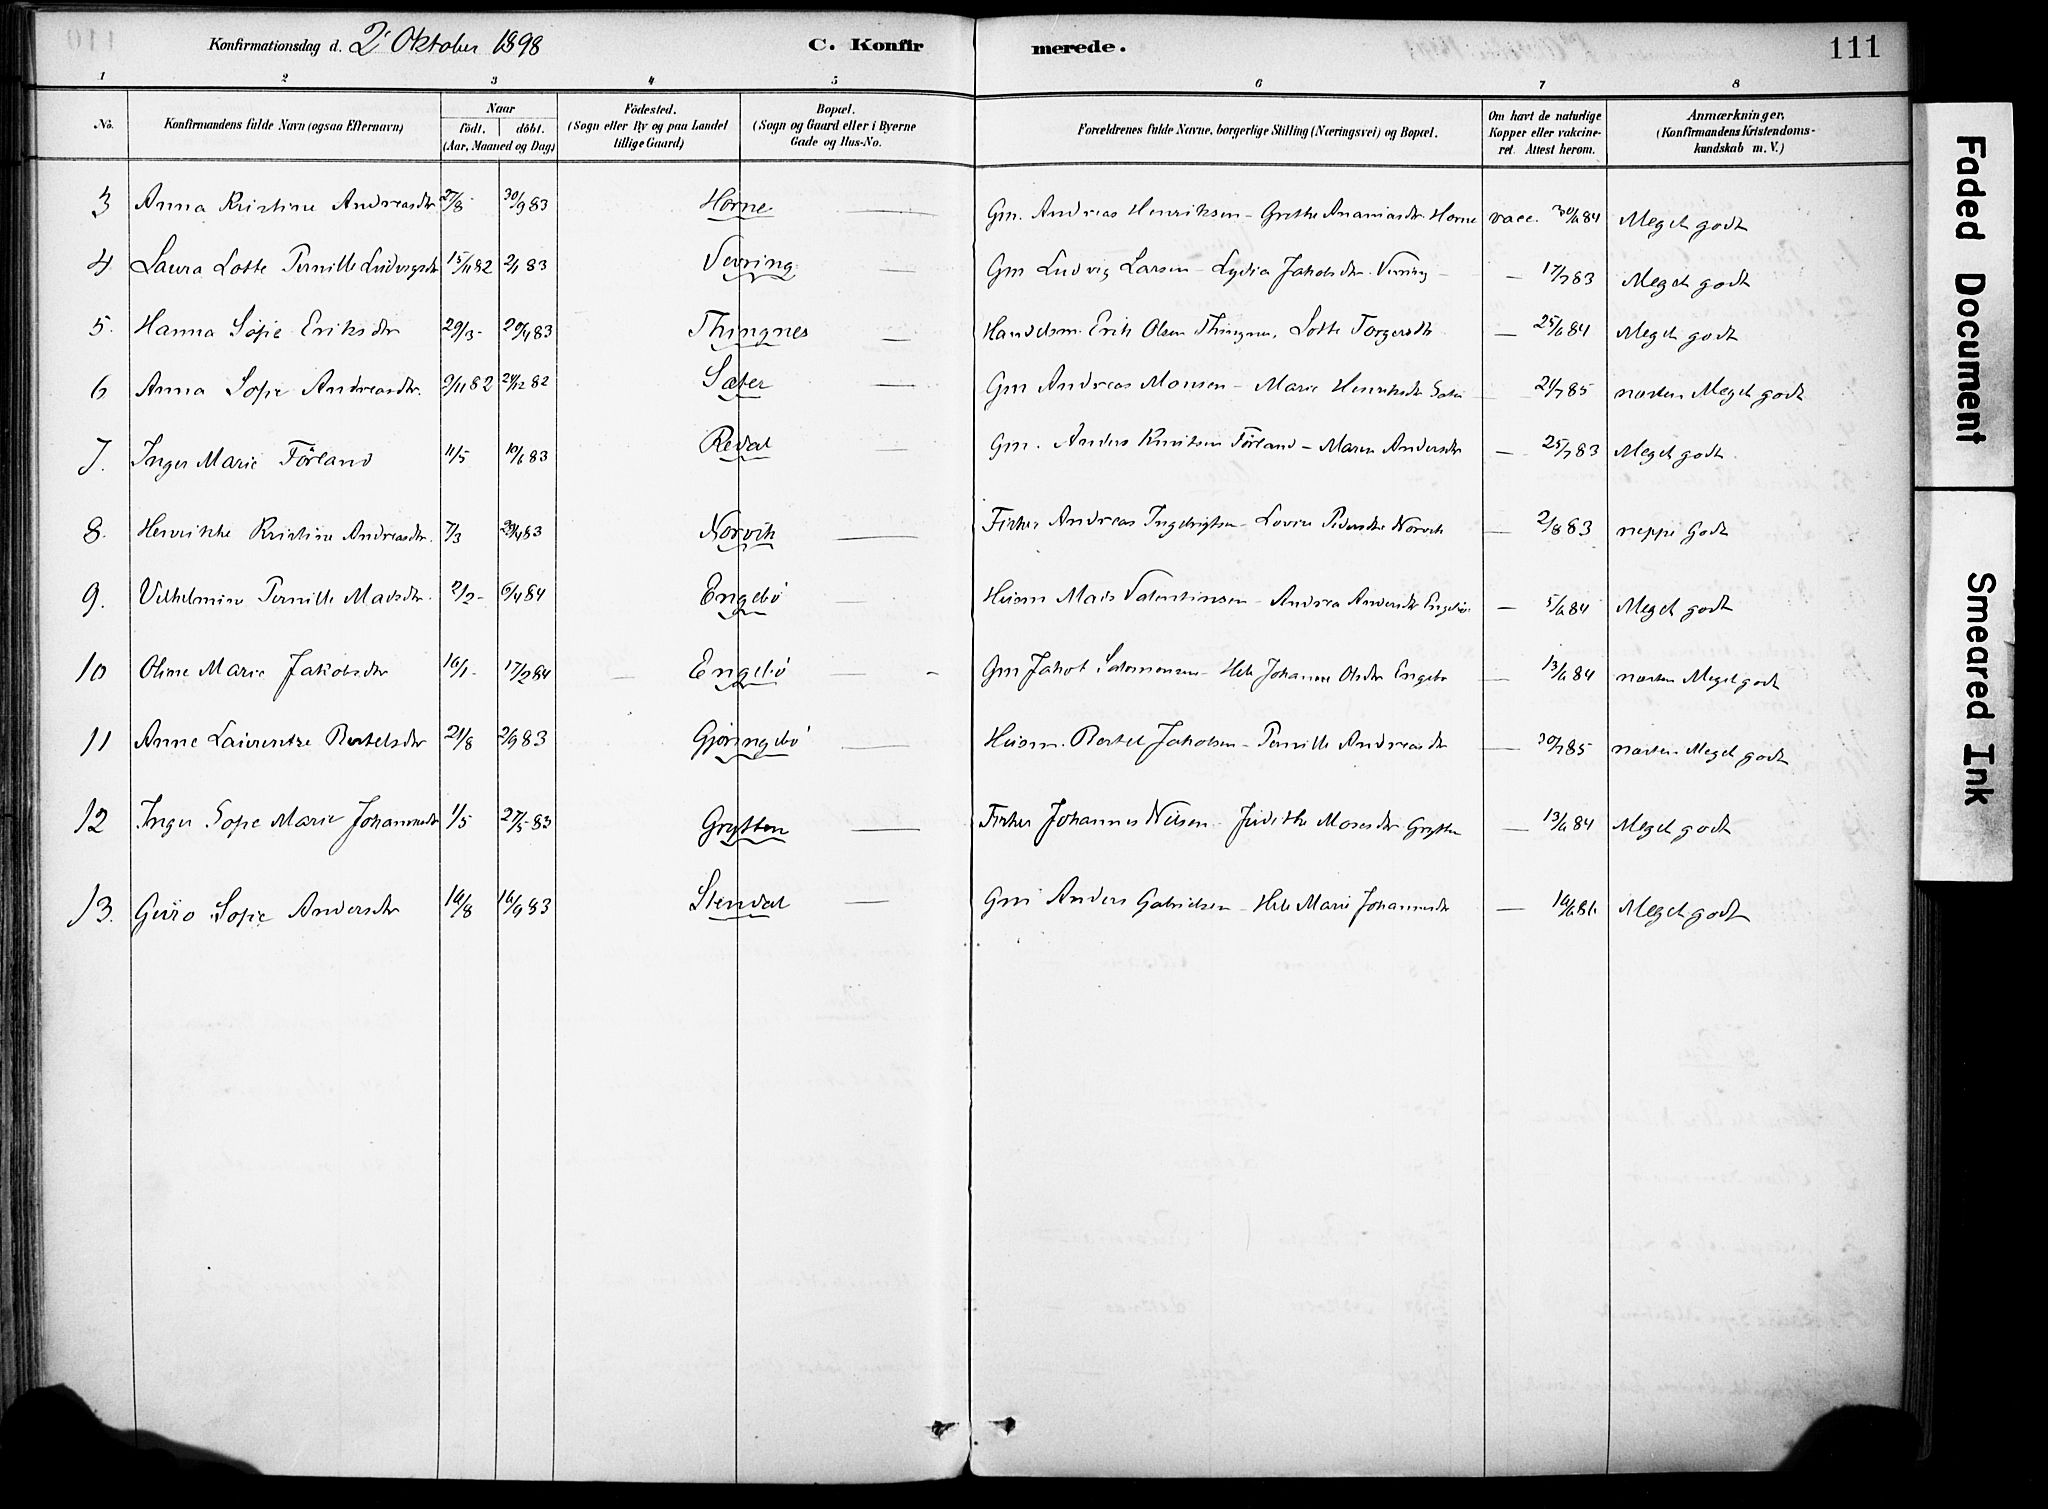 Konfirmationsdag d. 2' Oktober 1898 C. Konfirmerede. 111
1 2 3 4 5 6 7 8
No. Konfirmandens fulde Navn (ogsaa Efternavn) Naar födt. döbt. (Aar, Maaned og Dag) Födested. (Sogn eller By og paa Landet tillige Gaard) Bopæl. (Sogn og Gaard eller i Byerne Gade og Hus-No. Forældrenes fulde Navne, borgerlige Stilling (Næringsvei) og Bopæl. Om havt de naturlige Kopper eller vakcineret. Attest herom. Anmærkninger, (Konfirmandens Kristendomskundskab m. V.)
3 Anna Kristine Andreasdtr 27/8 30/9 83 Horne — Gm. Andreas Henriksen - Grethe Ananiasdtr Horne vacc. 30/6 84 Meget godt
4 Laura Lotte Pernille Ludvigsdtr 15/11 82 2/1 83 Vevring — Gm Ludvig Larsen - Lydia Jakobsdtr Vevring — 17/7 83 Meget godt
5. Hanna Sofie Eriksdtr 29/3 - 29/4 83 Thingnes — Handelsm. Erik Olsen Thingnes, Lotte Torgersdtr — 25/6 84 Meget godt
6 Anna Sofie Andreasdtr. 9/11 82 24/12 82 Sæter — Gm Andreas Monsen - Marie Henriksdtr Sæter — 21/7 85 næsten Meget godt
7. Inger Marie Förland 11/5 10/6 83 Redal — Gm. Anders Knutsen Förland - Maren Andersdtr — 25/7 83 Meget godt
8. Henrikke Kristine Andreasdtr. 7/3 29/4 83 Norvik — Fisker Andreas Ingebrigtsen - Lovise Pedersdtr Norvik — 2/8 83 neppe Godt
9. Vilhelmine Pernille Madsdtr. 2/2 - 6/4 84 Engebö — Husm Mads Valentinsen - Andrea Andersdtr Engebö — 5/6 84 Meget godt
10 Oline Marie Jakobsdtr 16/1 - 17/2 84 — Engebö — Gm Jakob Salomonsen - Hele Johanne Olsdtr Engebö — 13/6 84 næsten Meget godt
11 Anne Laurentze Bertelsdtr 21/8 2/9 83 Gjöringebö — Husm. Bertel Jakobsen - Pernille Andreasdtr — 30/7 85 næsten Meget godt
12 Inger Sofie Marie Johannesdtr 1/5 27/5 83 Grytten — Fisker Johannes Nilsen - Judithe Mosesdtr Grytten — 13/6 84 Meget godt
13. Guro Sofie Andersdtr 16/8 16/9 83 Stendal — Gm Anders Gabrielsen - Hele Marie Johannesdtr — Meget godt
Faded Document
Smeared Ink